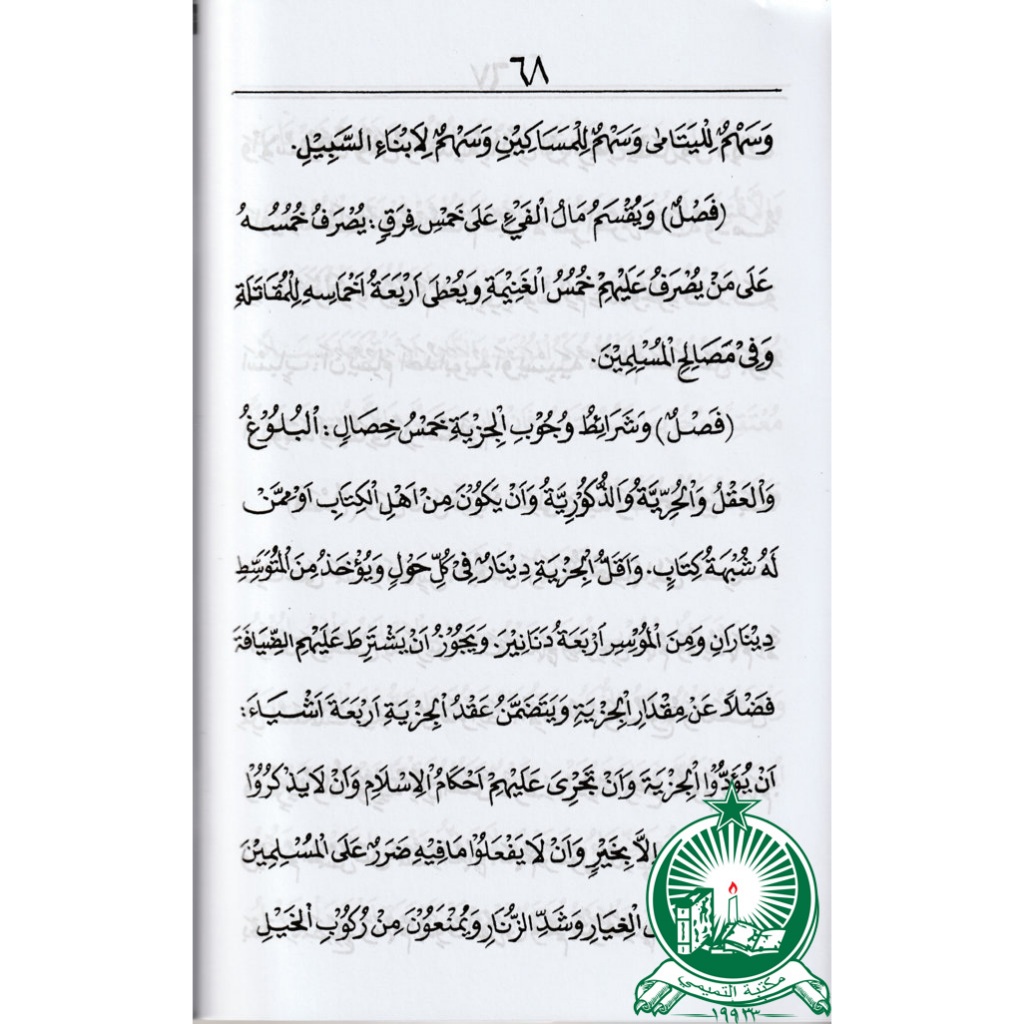 ٦٨
وَسَهْمٌ لِلْيَتَامَى وَسَهْمٌ لِلْمَسَاكِيْنِ وَسَهْمٌ لِاَبْنَاءِ السَّبِيْلِ.
(فَصْلٌ) وَيُقْسَمُ مَالُ الْفَيْءِ عَلَى خَمْسِ فِرَقٍ: يُصْرَفُ خُمُسُهُ
عَلَى مَنْ يُصْرَفُ عَلَيْهِمْ خُمُسُ الْغَنِيْمَةِ وَيُعْطَى اَرْبَعَةُ اَخْمَاسِهِ لِلْمُقَاتَلَةِ
وَفِىْ مَصَالِحِ الْمُسْلِمِيْنَ.
(فَصْلٌ) وَشَرَائِطُ وُجُوْبِ الْجِزْيَةِ خَمْسُ خِصَالٍ: اَلْبُلُوْغُ
وَالْعَقْلُ وَالْحُرِّيَّةُ وَالذُّكُوْرِيَّةُ وَاَنْ يَكُوْنَ مِنْ اَهْلِ الْكِتَابِ اَوْ مِمَّنْ
لَهُ شُبْهَةُ كِتَابٍ. وَاَقَلُّ الْجِزْيَةِ دِيْنَارٌ فِىْ كُلِّ حَوْلٍ وَيُؤْخَذُ مِنَ الْمُتَوَسِّطِ
دِيْنَارَانِ وَمِنَ الْمُوْسِرِ اَرْبَعَةُ دَنَانِيْرَ. وَيَجُوْزُ اَنْ يَشْتَرِطَ عَلَيْهِمِ الضِّيَافَةَ
فَضْلاً عَنْ مِقْدَارِ الْجِزْيَةِ وَيَتَضَمَّنُ عَقْدُ الْجِزْيَةِ اَرْبَعَةَ اَشْيَاءَ:
اَنْ يُؤَدُّوا الْجِزْيَةَ وَاَنْ تَجْرِىَ عَلَيْهِمْ اَحْكَامُ الْاِسْلَامِ وَاَنْ لَا يَذْكُرُوْا
اِلاَّ بِخَيْرٍ وَاَنْ لَا يَفْعَلُوْا مَا فِيْهِ ضَرَرٌ عَلَى الْمُسْلِمِيْنَ
الْغِيَارِ وَشَدِّ الزُّنَّارِ وَيُمْنَعُوْنَ مِنْ رُكُوْبِ الْخَيْلِ
مكتبة التميمي